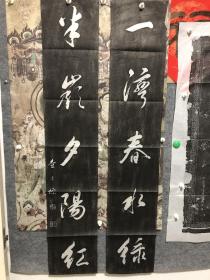 一湾春水绿
半岭夕陽红